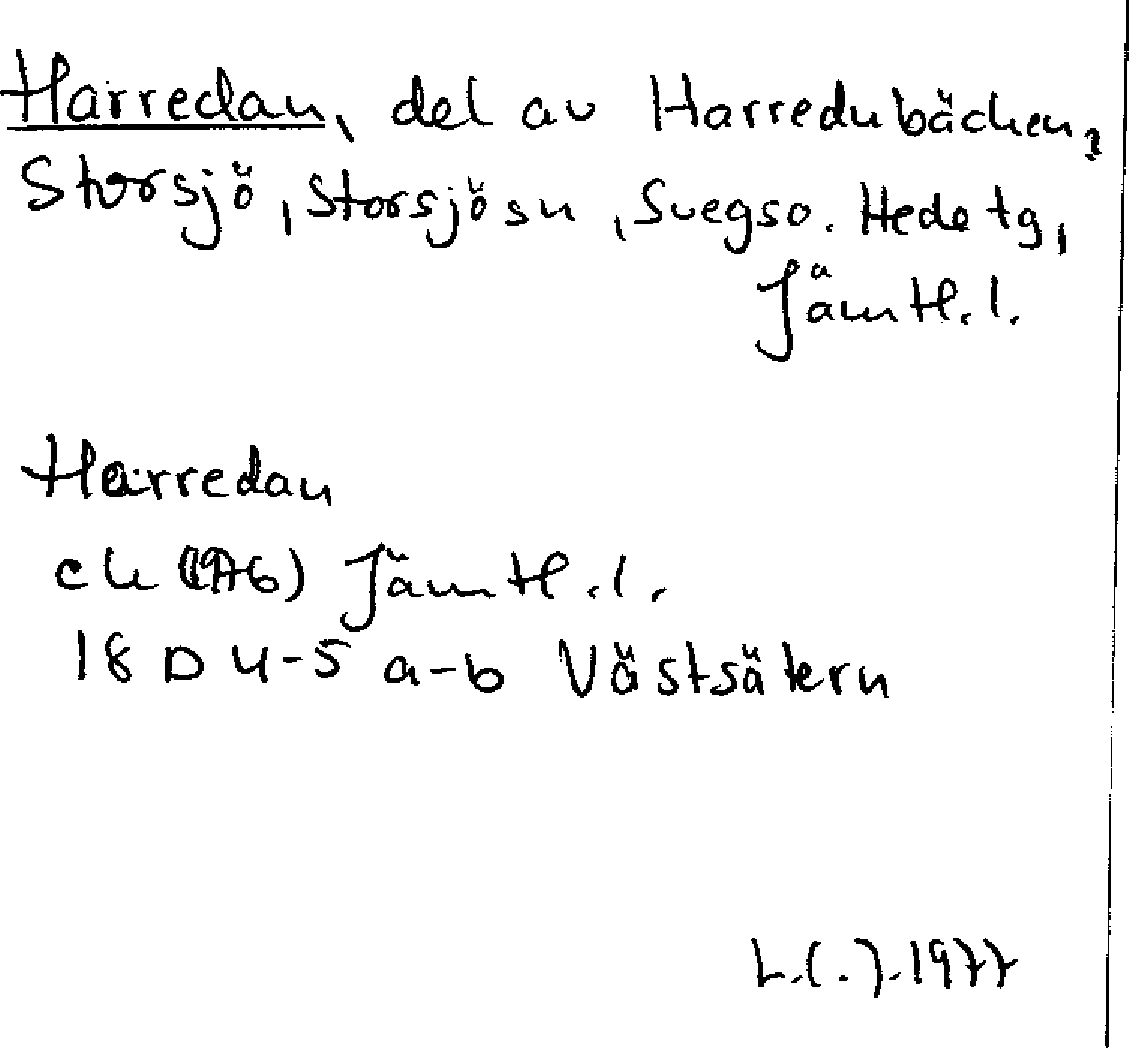 Harredan, del av Harredubäcken,
Storsjö, Storsjö sn, Svegs o. Hede tg,
Jämtl. l.
Harredan
ek (1976) Jämtl. l.
18 D 4-5 a-b Västsätern
1977